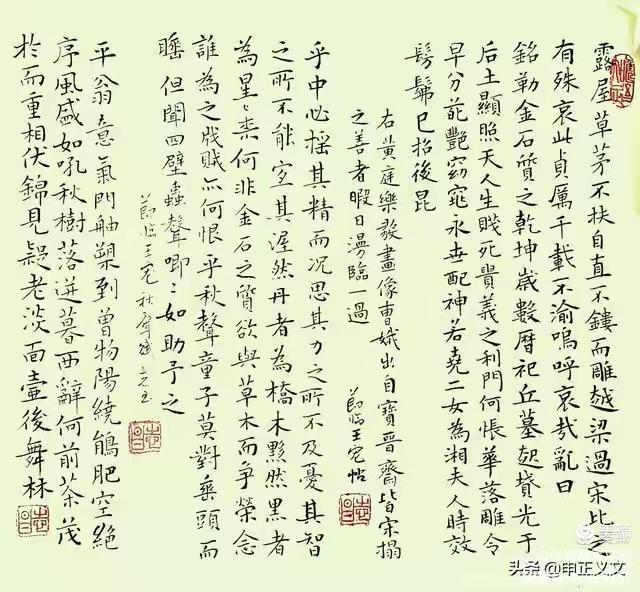 露屋草茅不扶自直不鏤而雕越梁過宋比之
有殊哀此貞厲千載不渝嗚呼哀哉亂曰
銘勒金石質之乾坤歲數曆祀丘墓起墳光于
后土顯照天人生賤死貴義之利門何悵華落雕令
早分葩艷窈窕永世配神若堯二女為湘夫人時效
髣髴已招後昆
右黃庭樂毅畫像曹娥出自寶晉齋皆宋搨
之善者暇日漫臨一過
節臨王寵帖
乎中必搖其精而況思其力之所不及憂其智
之所不能宜其渥然丹者為橋木黟然黑者
為星〻柰何非金石之質欲與草木而爭榮念
誰為之戕賊亦何恨乎秋聲童子莫對垂頭而
睡但聞四壁蟲聲唧〻如助予之
節臨王寵秋聲賦
平翁意氣門舳槊到曾物陽繞鵲肥空絕
序風盛如吼秋樹落迸暮西辭何前茶茂
於而重相伏錦見疑老淡面壺後舞林
美篇
头条 @申正义文